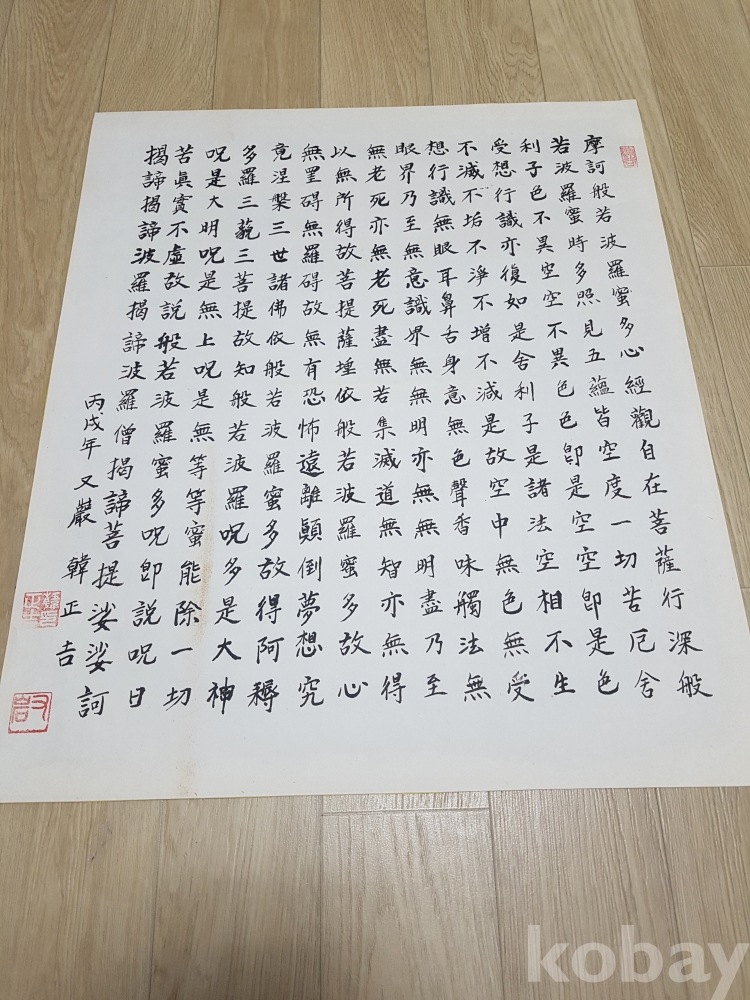 摩訶般若波羅蜜多心經觀自在菩薩行深般
若波羅蜜時多照見五蘊皆空度一切苦厄舍
利子色不異空空不異色色卽是空空卽是色
受想行識亦復如是舍利子是諸法空相不生
不滅不垢不淨不增不減是故空中無色無受
想行識無眼耳鼻舌身意無色聲香味觸法無
眼界乃至無意識界無無明亦無無明盡乃至
無老死亦無老死盡無若集滅道無智亦無得
以無所得故菩提薩埵依般若波羅蜜多故心
無罣碍無羅碍故無有恐怖遠離顚倒夢想究
竟涅槃三世諸佛依般若波羅蜜多故得阿耨
多羅三藐三菩提故知般若波羅呪多是大神
呪是大明呪是無上呪是無等等蜜能除一切
苦眞實不虛故說般若波羅蜜多呪卽説呪曰
揭諦揭諦波羅揭諦波羅僧揭諦菩提娑娑訶
丙戌年 又巖 韓正吉
又岩
kobay